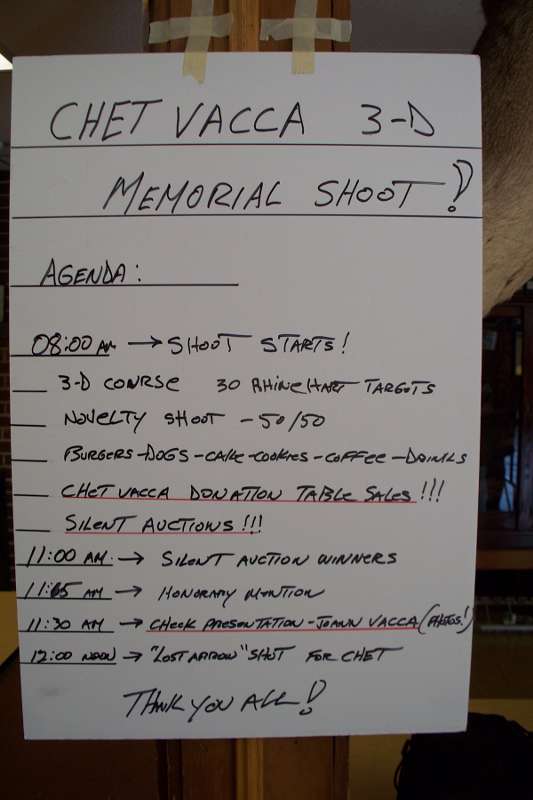 CHET VACCA 3-D
MEMORIAL SHOOT!
AGENDA:
08:00 AM → SHOOT STARTS!
— 3-D COURSE 30 RHINEHART TARGETS
— NOVELTY SHOOT - 50/50
— BURGERS-DOGS-CAKE-COOKIES-COFFEE-DRINKS
— CHET VACCA DONATION TABLE SALES!!!
— SILENT AUCTIONS!!!
11:00 AM → SILENT AUCTION WINNERS
AM → HONORARY MENTION
11:30 AM → CHECK PRESENTATION - JOANN VACCA (PHOTOS!)
12:00 NOON → "LOST ARROW" SHOT FOR CHET
THANK YOU ALL!